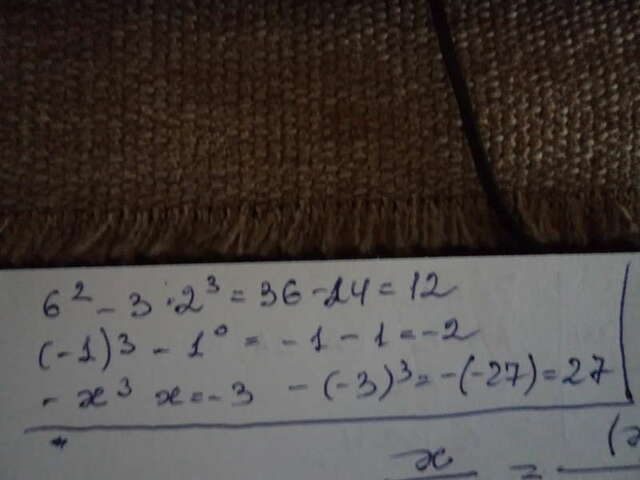 6² - 3 · 2³ = 36 - 24 = 12
(-1)³ - 1⁰ = - 1 - 1 = -2
- x³ x = - 3 - (-3)³ = -(-27) = 27
*
x = (